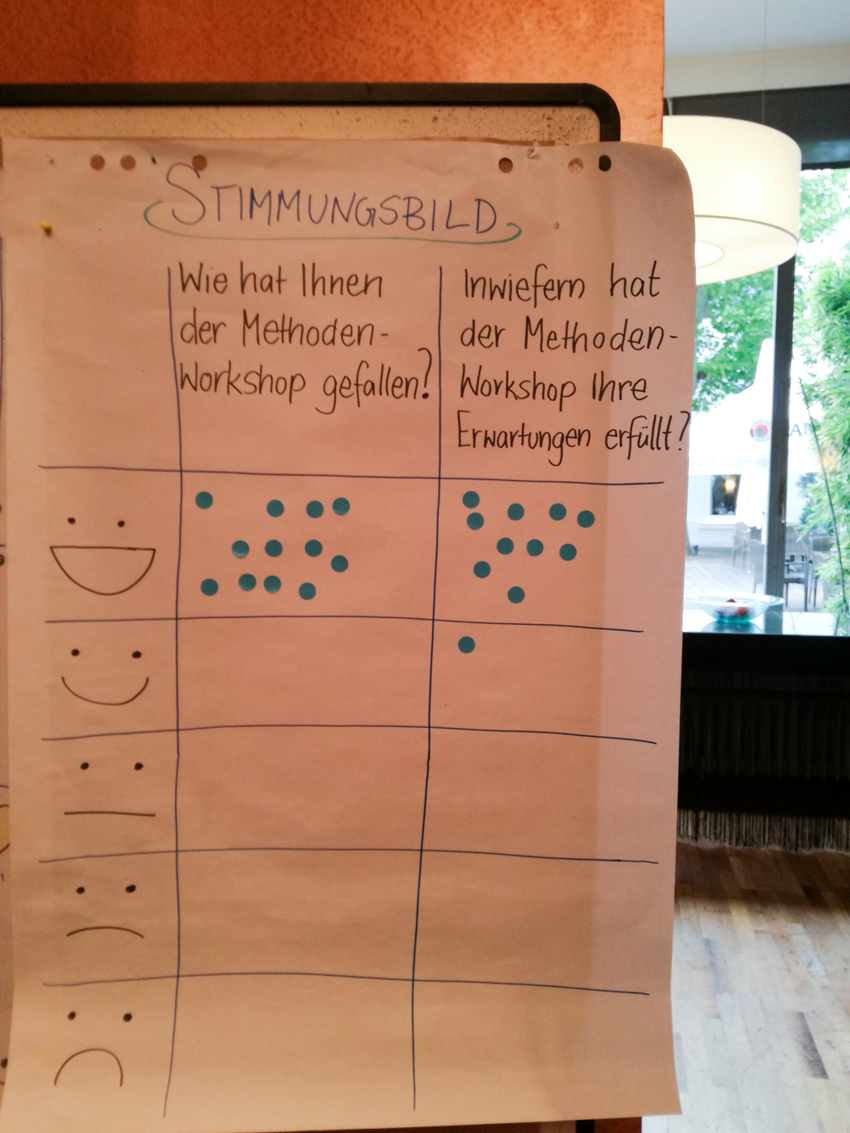 STIMMUNGSBILD
Wie hat Ihnen
der Methoden-
Workshop gefallen?
Inwiefern hat
der Methoden-
Workshop Ihre
Erwartungen erfüllt?